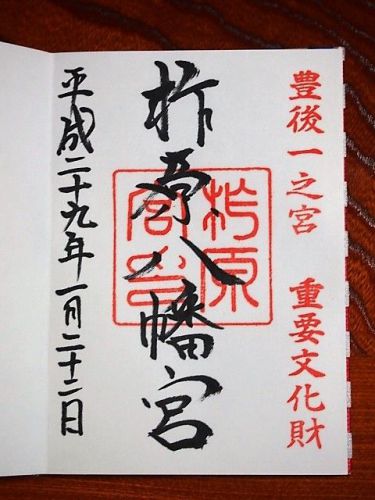 豊後一之宮 重要文化財
柞原八幡宮
柞原宮印
平成二十九年一月二十二日